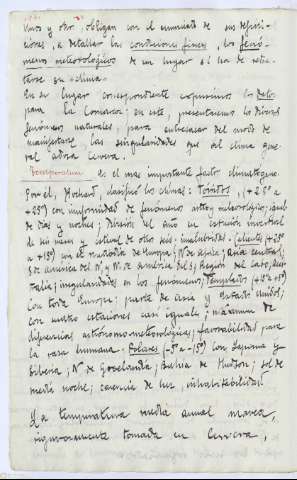 unos y otro, obligan con el enunciado de sus defini-
ciones, a detallar las condiciones físicas, los fenó-
menos meteorológicos de un lugar si ha de reta-
tarse su clima.
En su lugar correspondiente expusimos los datos
para la Comarca; en este, presentaremos los diversos
fenómenos naturales, para entresacar del modo de
manifestarse, las singularidades que al clima gene-
ral adora Cervera.
Temperatura es el más importante factor climatológico.
Por él, Rochard, clasificó los climas: Tórridos, (+25º a
+28º) con uniformidad de fenómenos astro y meteorológicos, igual-
dad días y noches; División del año en estación invernal
de seis meses y estival de otros seis; insalubridad. - Calientes (+25º
a +15º) con el mediodía de Europa; N. de África; Asia central;
S. de América del N. y N. de América del S; Región del Cabo, Aus-
tralia; irregularidades en los fenómenos; Templados (+15º a +5º)
con toda Europa; parte de Asia y Estados Unidos;
con cuatro estaciones casi iguales; máximum de
diferencias astrónomo-meteorológicas; favorabilidad para
la raza humana. - Polares (-5º a -15º) con Laponia y
Siberia, Nº de Groelandia, Bahía de Hudson; sol de
media noche; carencia de luz, inhabitabilidad.
La temperatura media anual
rigurosamente tomada en Cervera,